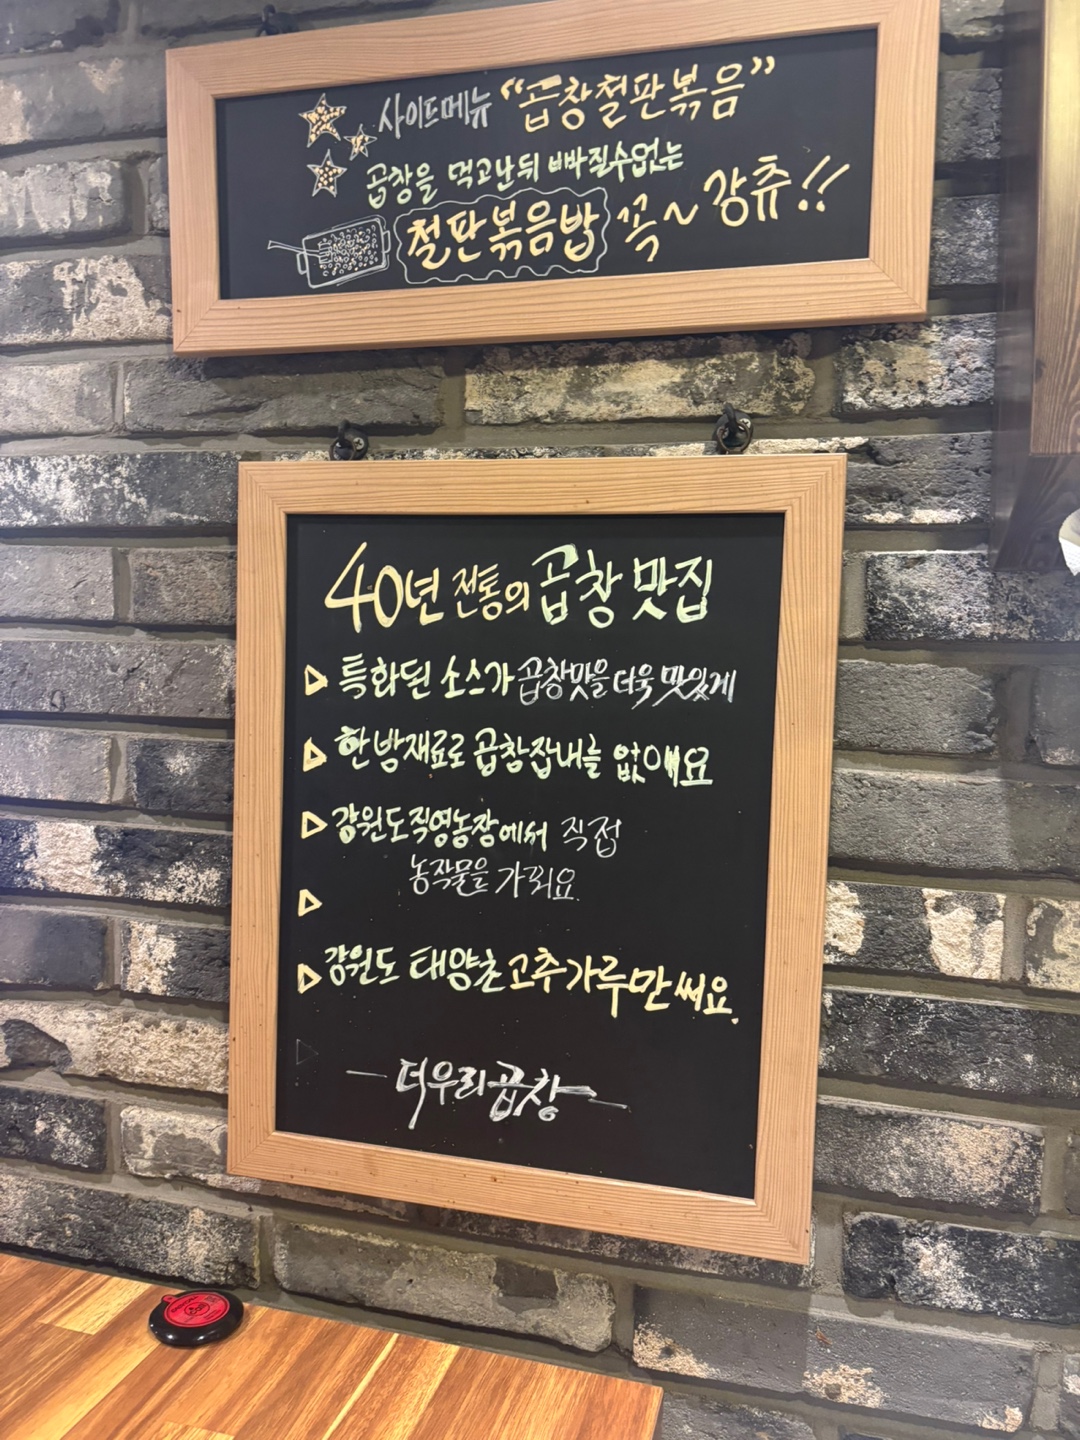 사이드메뉴 “곱창철판볶음”
곱창을 먹고난뒤 빠질수없는
철판볶음밥 꼭~ 강츄!!
40년 전통의 곱창 맛집
▷ 특화된 소스가 곱창맛을 더욱 맛있게
▷ 한방재료로 곱창잡내를 없애요
▷ 강원도직영농장에서 직접
농작물을 가꿔요
▷
▷ 강원도 태양초고추가루만써요.
- 더우리곱창 -